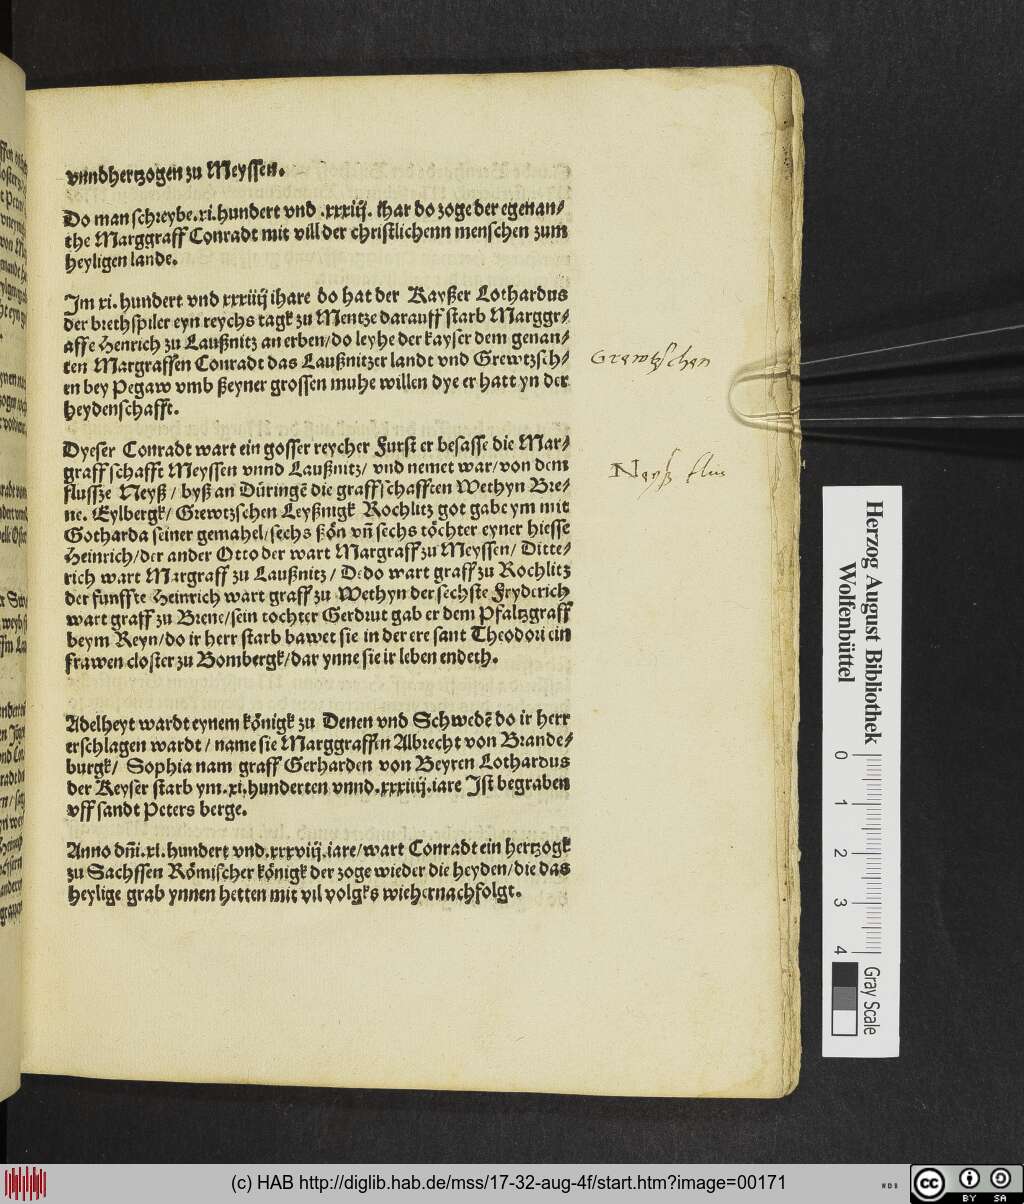 vnndhertzogen zu Meyssen.
Do man schreybe.xi.hundert vnd .xxxiij. ihar do zoge der egenan/
the Marggraff Conradt mit vill der christlichenn menschen zum
heyligen lande.
Im xi. hundert vnd xxxiiij ihare do hat der Kayßer Lothardus
der biethspiler eyn reychs tagk zu Mentze darauff starb Marggr/
affe Henrich zu Laußnitz an erben/do leyhe der kayser dem genan/
ten Margraffen Conradt das Laußnitzer landt vnd Grewtzsch/
en bey Pegaw vmb ßeyner grossen muhe willen dye er hatt yn der
heydenschafft.
Grewtzschen
Dyeser Conradt wart ein gosser reycher Furst er besasse die Mar/
graffschafft Meyssen vnnd Laußnitz/ vnd nemet war/von dem
flussze Neyß/ byß an Düringē die graffschafften Wethyn Bre/
ne. Eylbergk/ Grewtzschen Leyßnigk Rochlitz got gabe ym mit
Gotharda seiner gemahel/sechs ßön vn̄ sechs töchter eyner hiesse
Heinrich/der ander Otto der wart Margraff zu Meyssen/ Ditte/
rich wart Margraff zu Laußnitz/ Dedo wart graff zu Rochlitz
der funffte Heinrich wart graff zu Wethyn der sechste Fryderich
wart graff zu Brene/sein tochter Gerdrut gab er dem Pfaltzgraff
beym Reyn/do ir herr starb bawet sie in der ere sant Theodori ein
frawen closter zu Bombergk/dar ynne sie ir leben endeth.
Neyß flus
Adelheyt wardt eynem königk zu Denen vnd Schwedē do ir herr
erschlagen wardt/ name sie Marggraffen Albrecht von Brande/
burgk/ Sophia nam graff Gerharden von Beyren Lothardus
der Keyser starb ym.xi.hunderten vnnd.xxxiiij.iare Ist begraben
vff sandt Peters berge.
Anno dn̄i.xi.hundert vnd.xxxviij.iare/wart Conradt ein hertzogk
zu Sachssen Römischer königk der zoge wieder die heyden/die das
heylige grab ynnen hetten mit vil volgks wiehernachfolgt.
Herzog August Bibliothek
Wolfenbüttel
0 1 2 3 4
Gray Scale
(c) HAB http://diglib.hab.de/mss/17-32-aug-4f/start.htm?image=00171
WDB
cc BY SA